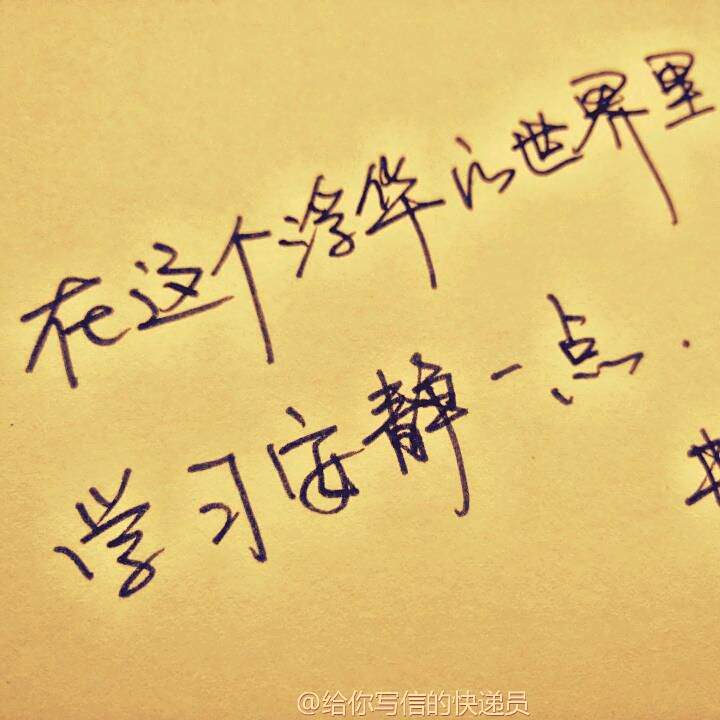 在这个浮华的世界里
学习安静一点.
@给你写信的快递员